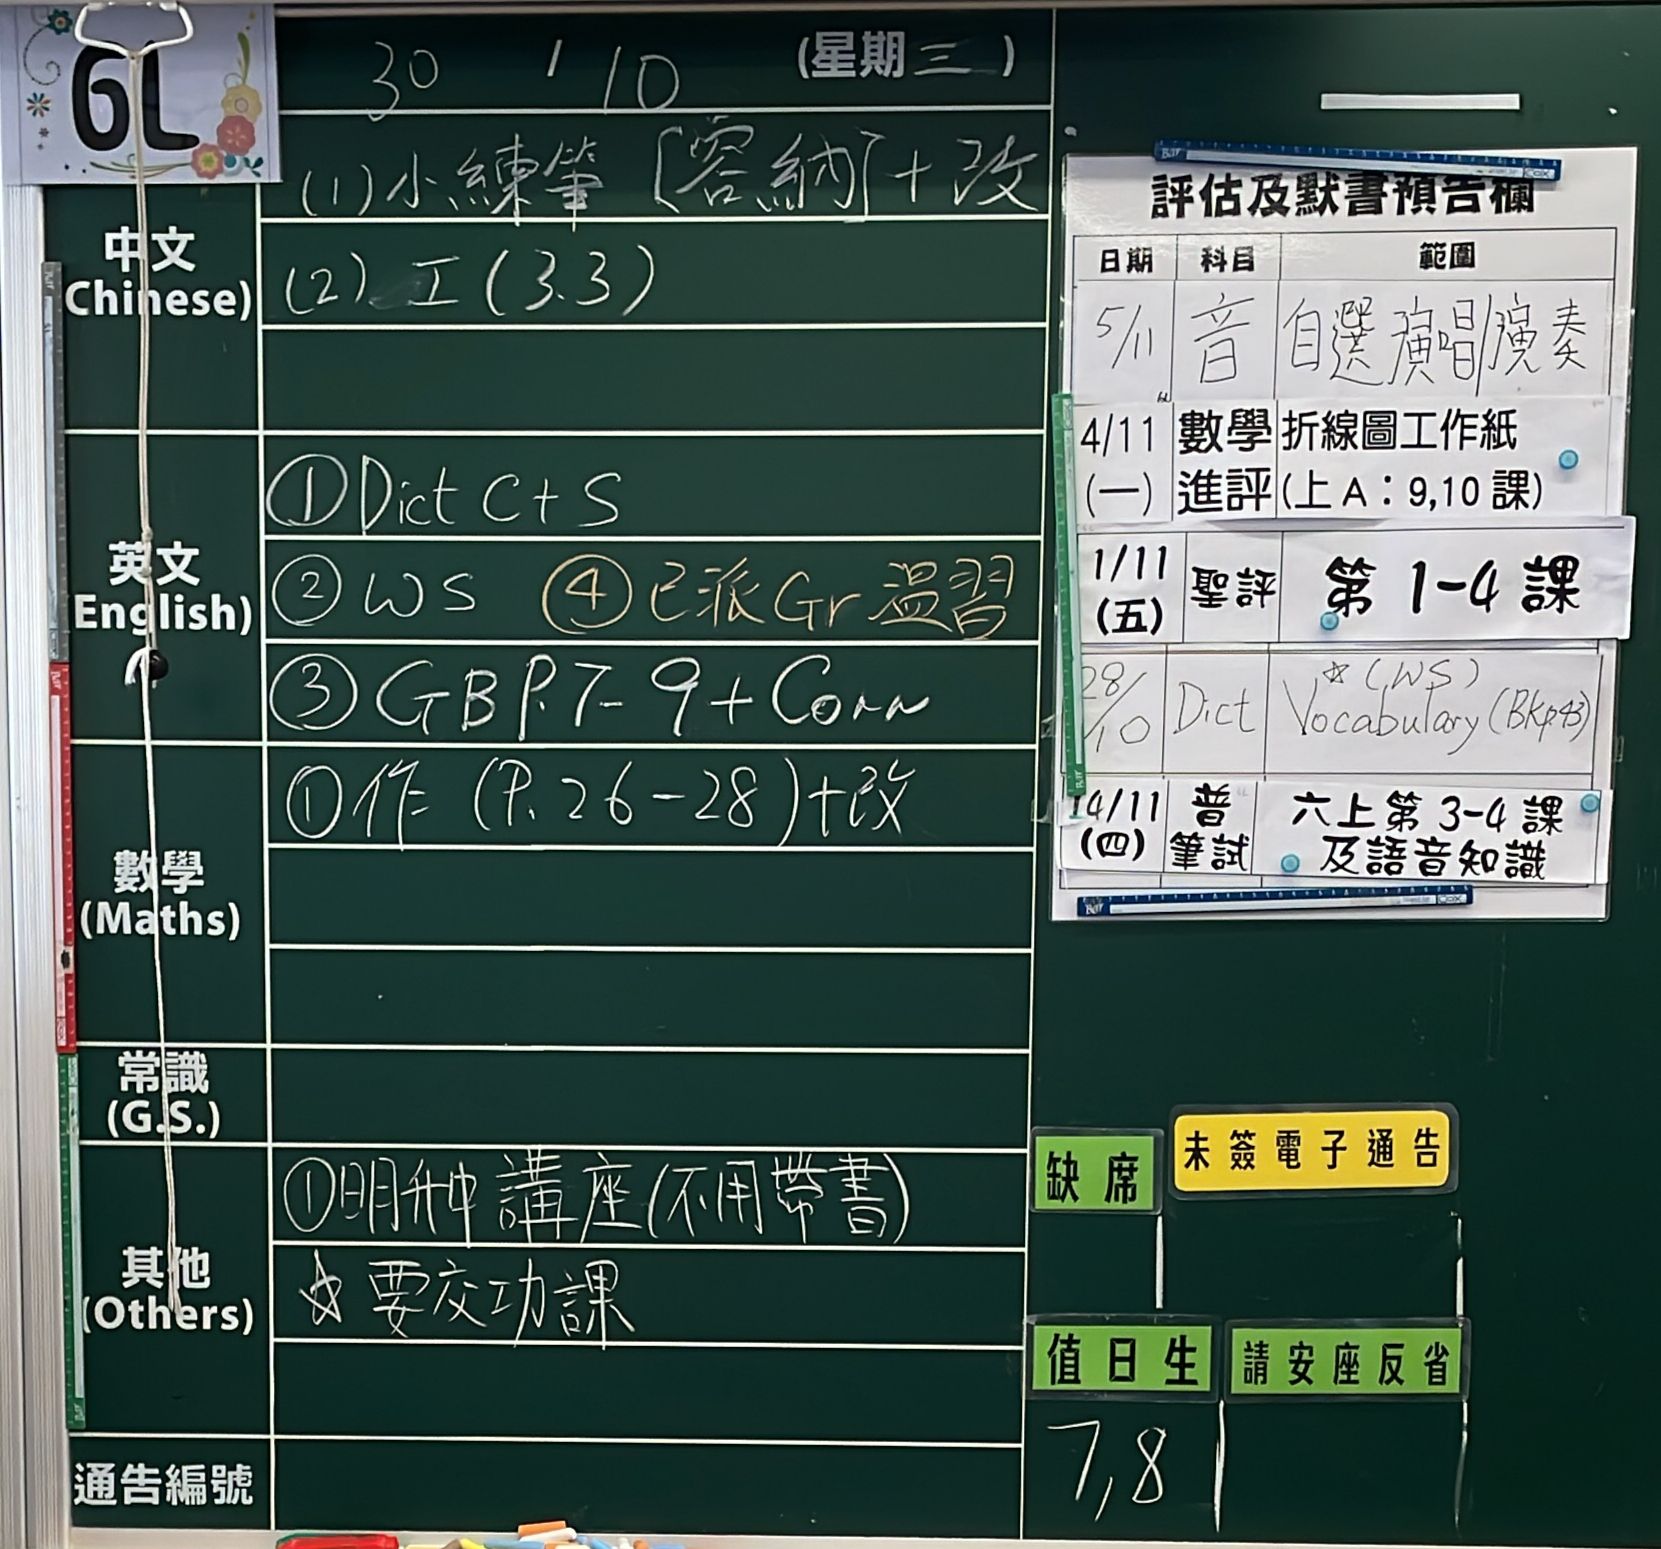 6L
30 / 10 (星期三)
中文
(Chinese)
(1) 小練筆「容納」+改
(2) 工(3.3)
英文
(English)
① Dict C+S
② WS ④ 已派Gr溫習
③ GB P.7-9 + Corr
數學
(Maths)
① 作 (P.26-28)+改
常識
(G.S.)
其他
(Others)
① 明 講座(不用帶書)
☆ 要交功課
通告編號
評估及默書預告欄
日期 科目 範圍
5/11 音 自選演唱/演奏
4/11 數學 折線圖工作紙
(一) 進評 (上A:9,10課)
1/11
(五) 聖評 第1-4課
28/10 Dict ☆(WS)
Vocabulary (BKp43)
14/11 普 六上第3-4課
(四) 筆試 及語音知識
缺席 未簽電子通告
值日生 請安座反省
7,8